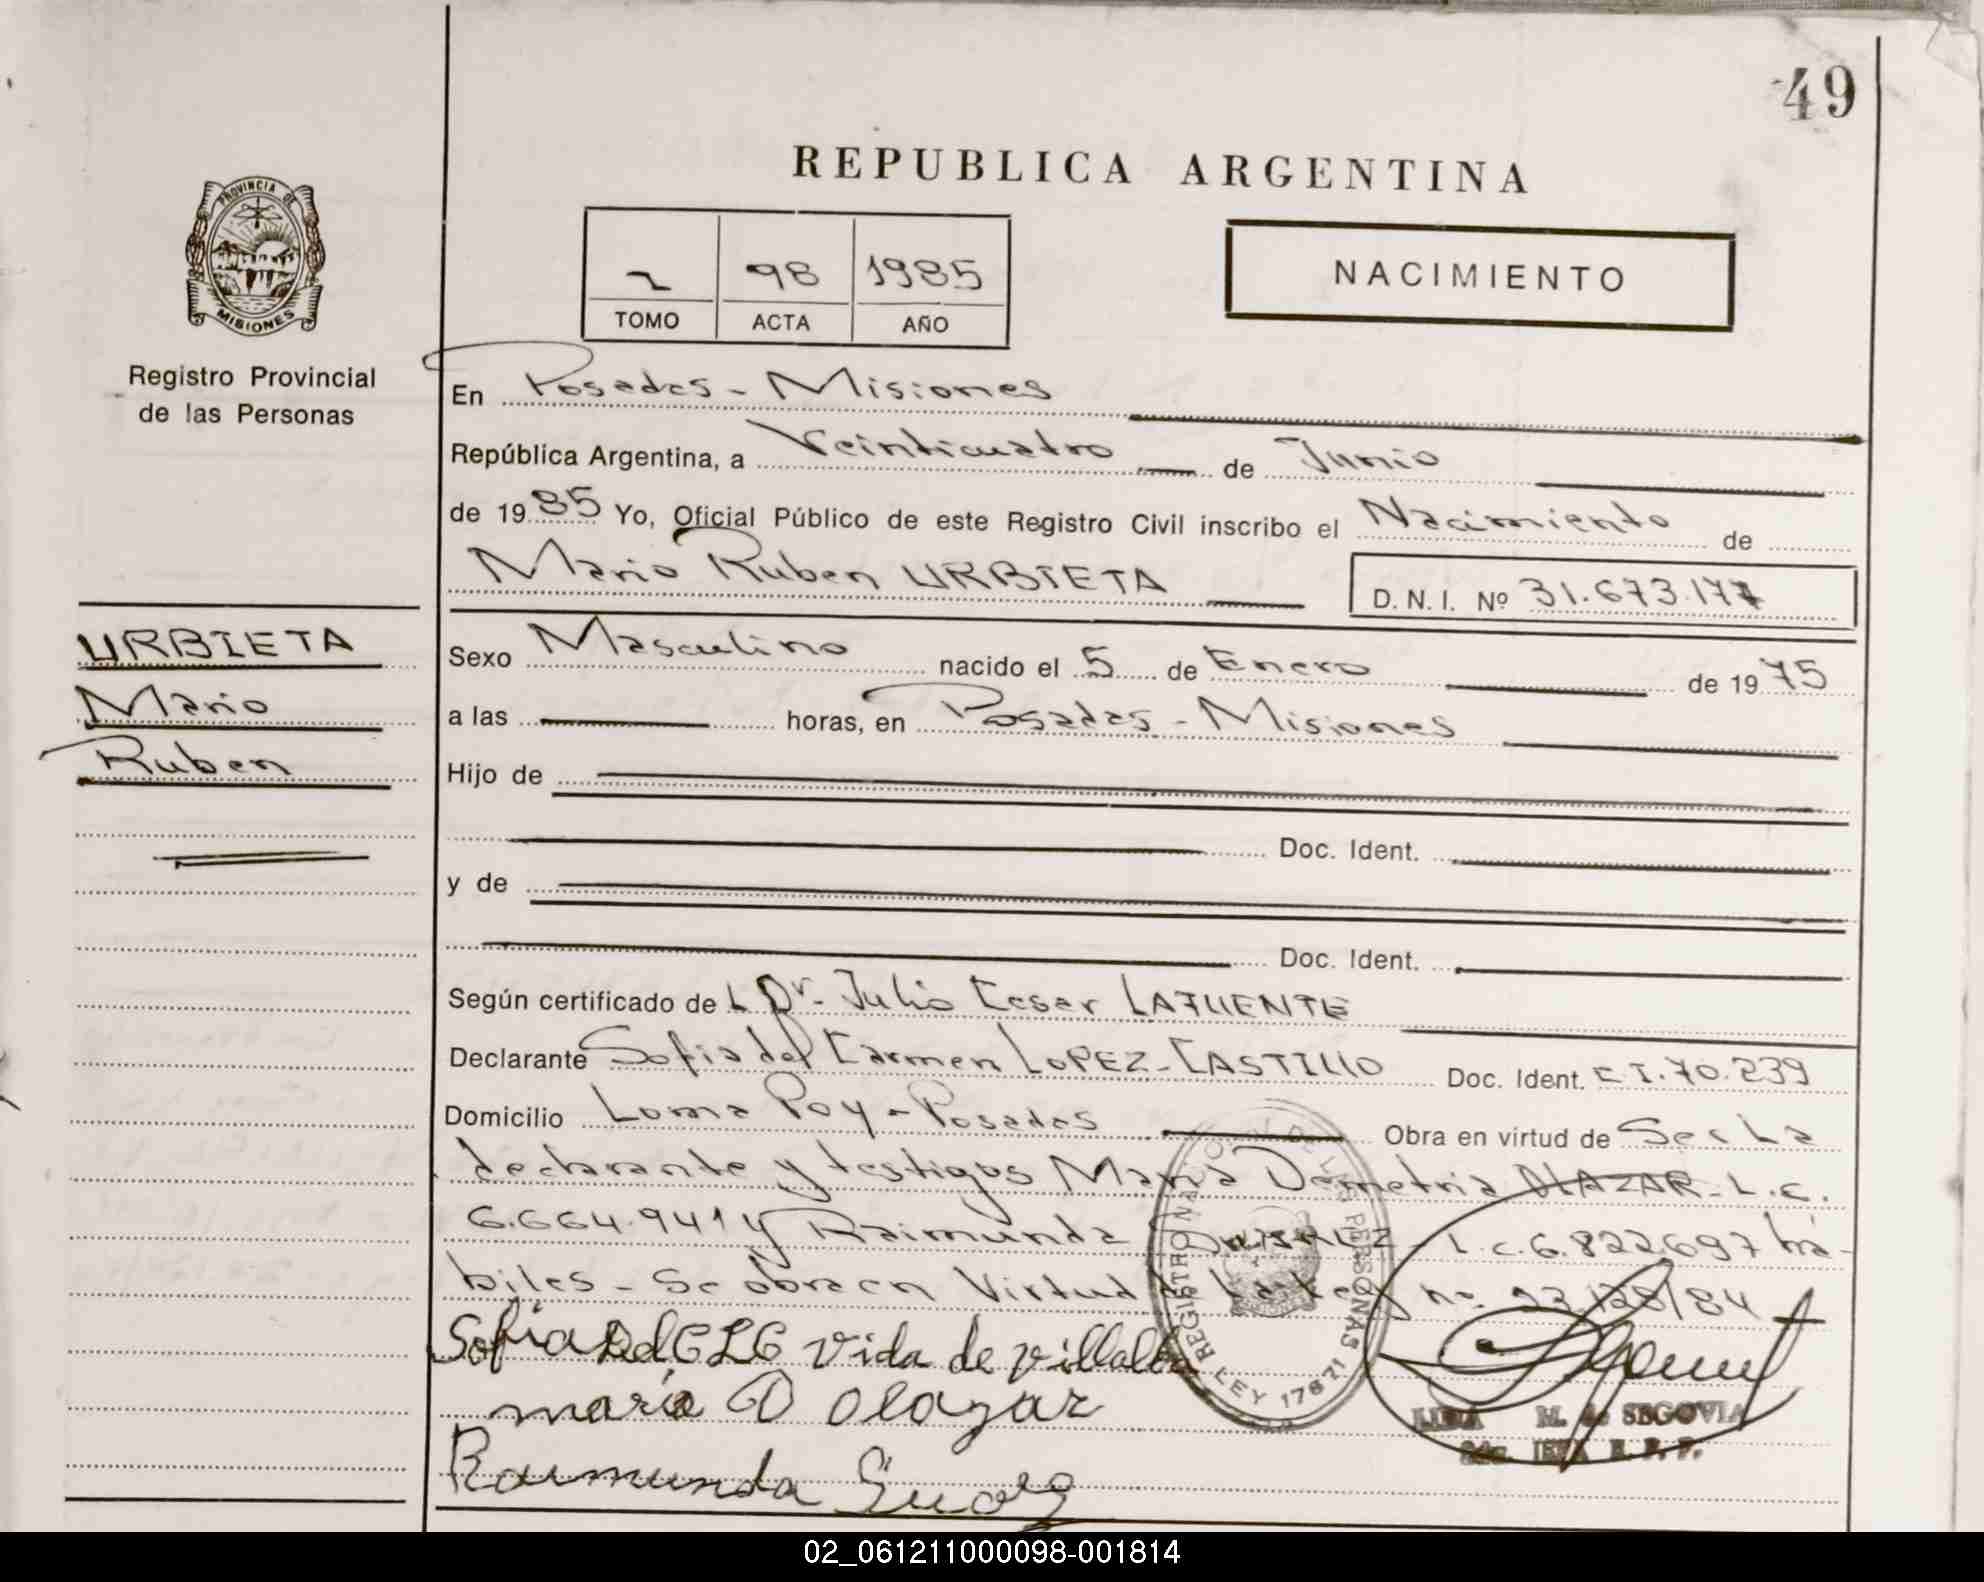 49
REPUBLICA ARGENTINA
PROVINCIA DE
MISIONES
2 98 1985
TOMO ACTA AÑO
NACIMIENTO
Registro Provincial
de las Personas
En Posadas - Misiones
República Argentina, a Veinticuatro de Junio
de 1985 Yo, Oficial Público de este Registro Civil inscribo el Nacimiento de
Mario Ruben URBIETA D.N.I. Nº 31.673.177
URBIETA
Mario
Ruben
Sexo Masculino nacido el 5 de Enero de 1975
a las horas, en Posadas - Misiones
Hijo de
Doc. Ident.
y de
Doc. Ident.
Según certificado de L Dr. Julio Cesar LAFUENTE
Declarante Sofia del Carmen LOPEZ-CASTILLO Doc. Ident. C I. 70.239
Domicilio Loma Poy - Posadas Obra en virtud de Ser La
declarante y testigos Maria Demetria OLAZAR - L.C.
6.664.941 y Raimunda L.C. 6.822.697 há-
biles - Se obra en Virtud de La Ley nº 23.128/84
Sofia del C L C Vida de villalba
maria D olazar
Raimunda
REGISTRO NACIONAL DE LAS PERSONAS
LEY 17671
M. de SEGOVIA
02_061211000098-001814